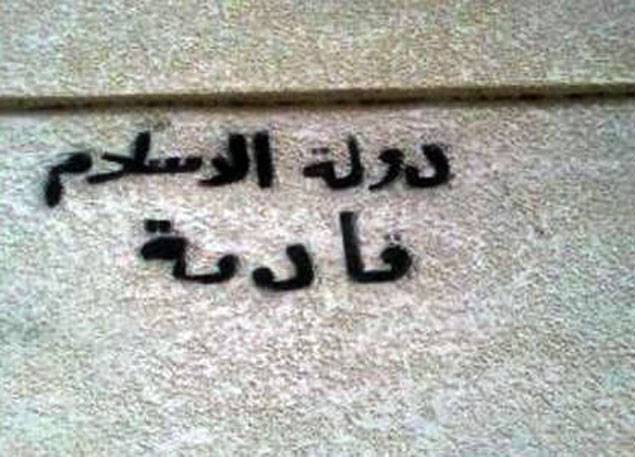 دولة الاسلام
قادمة